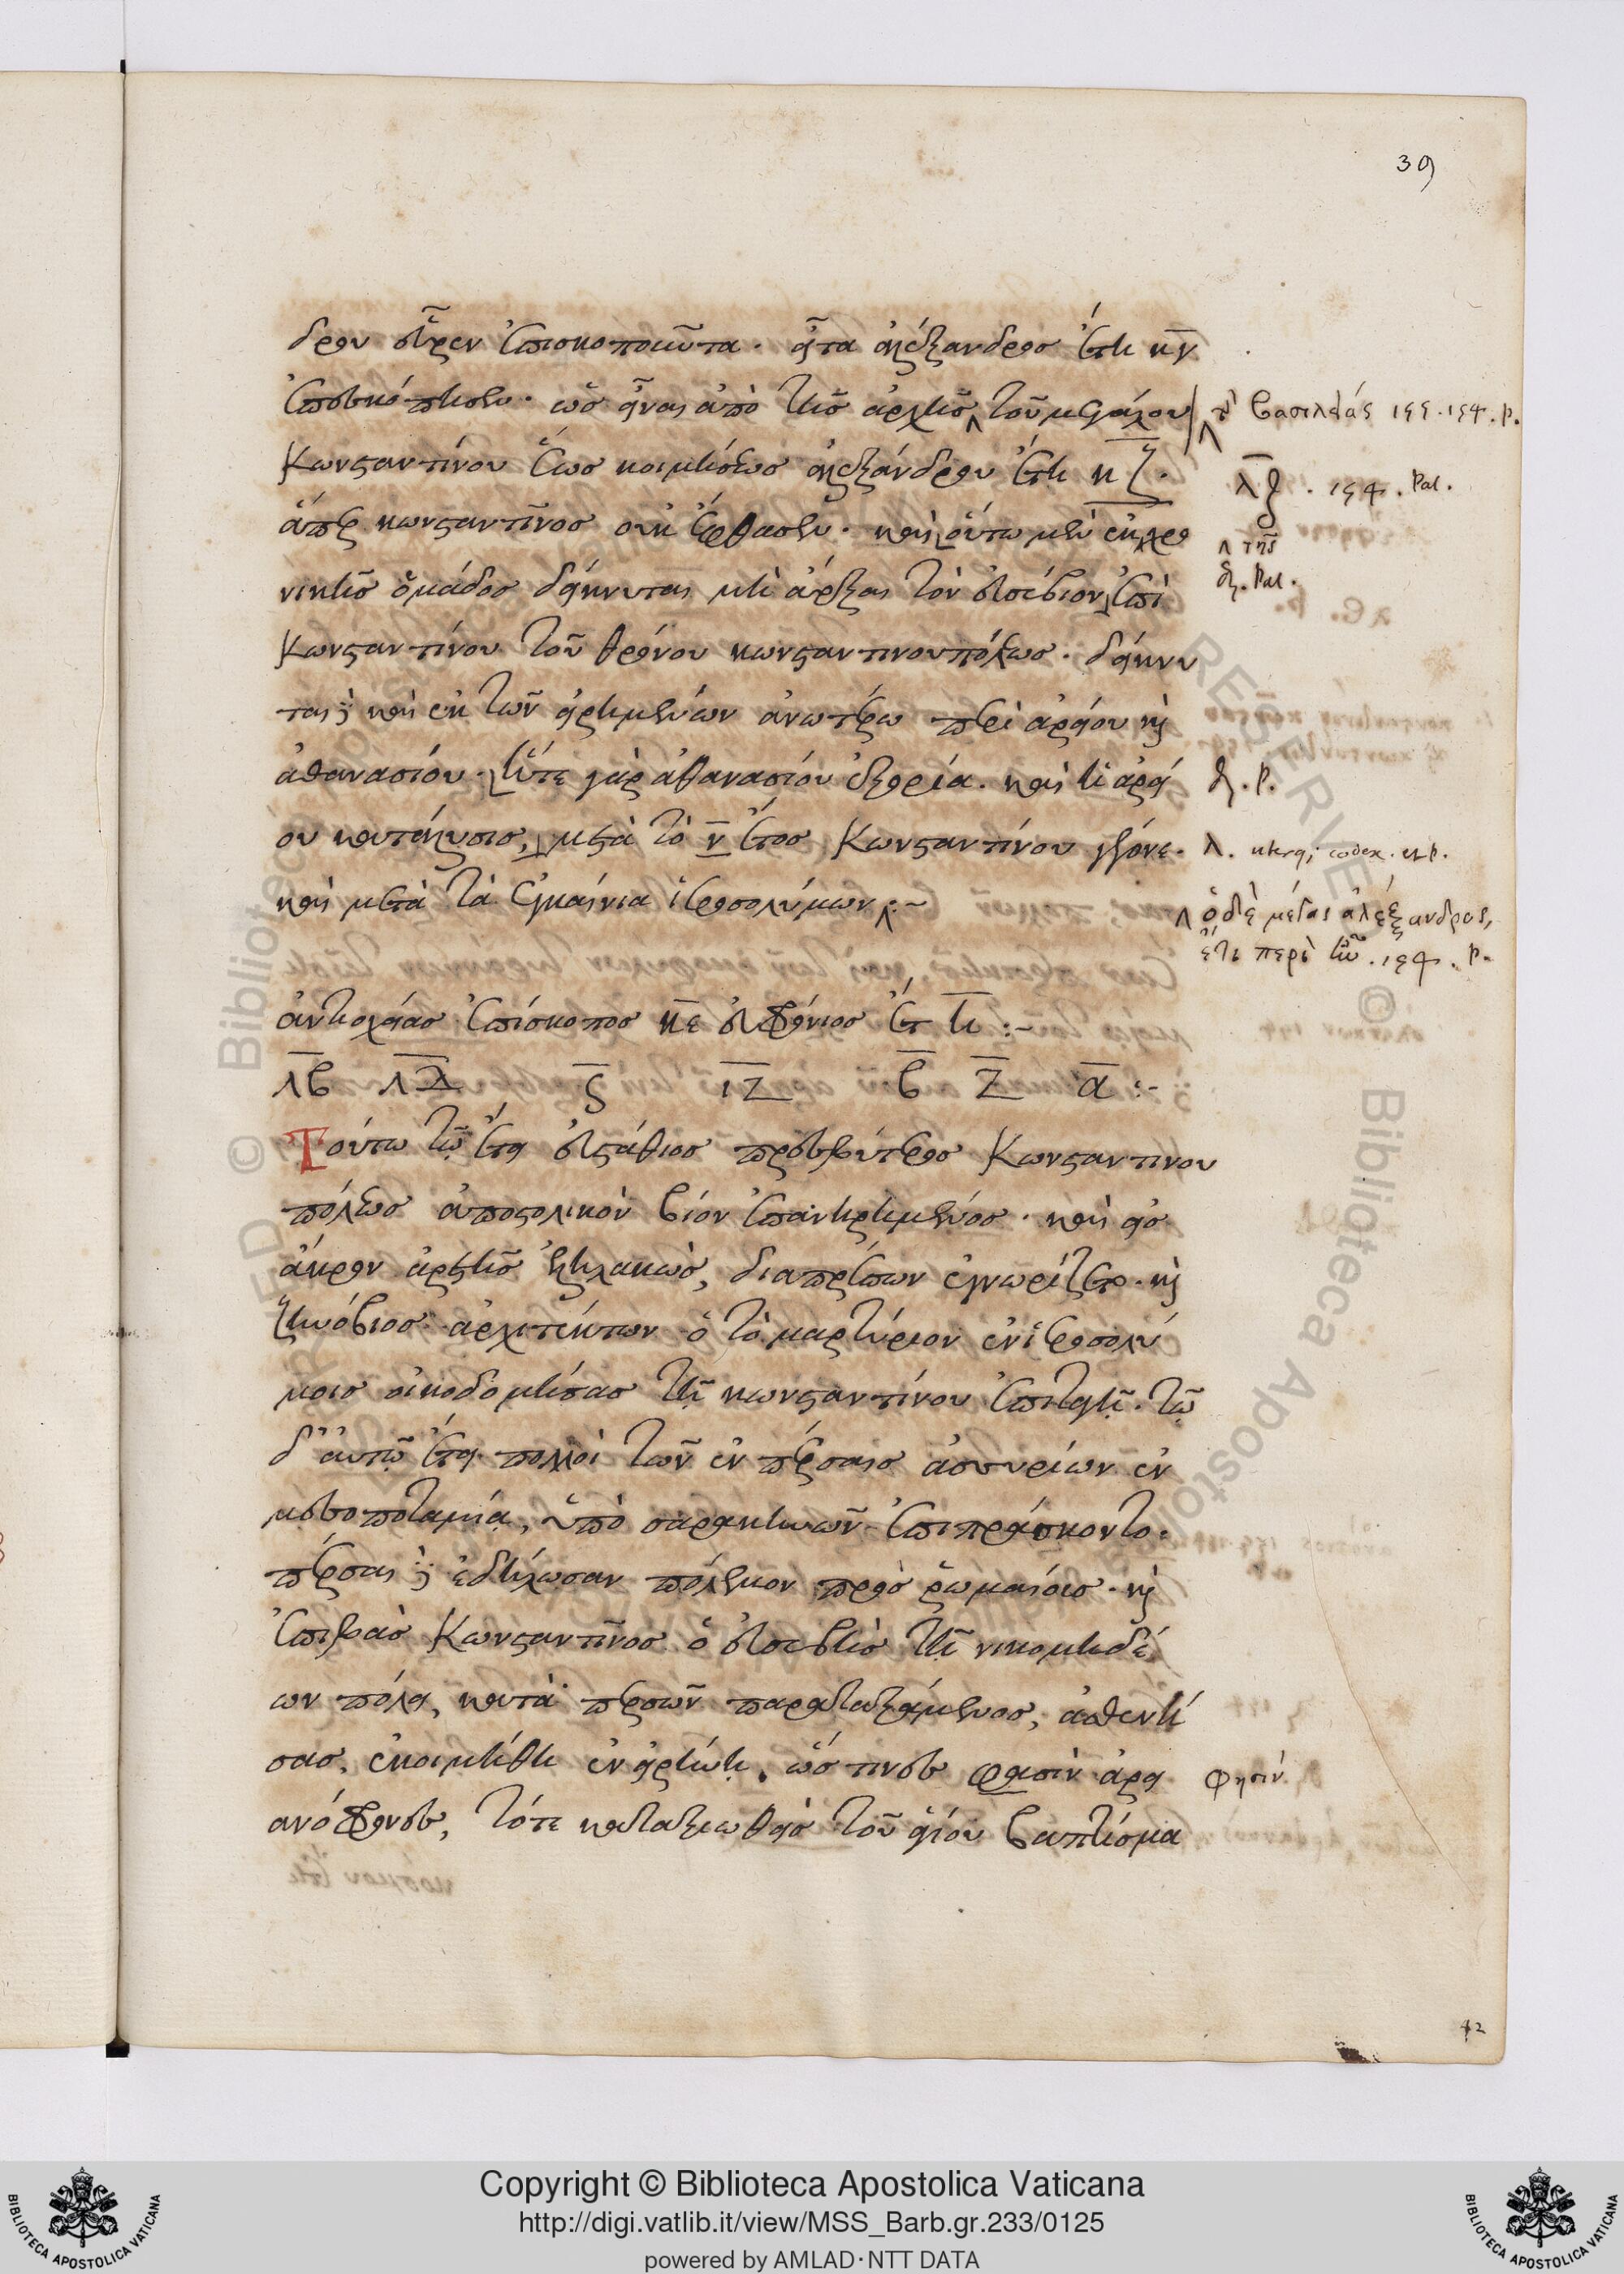 39
δρου εὗρεν ἐπισκοποῦντα. εἶτα ἀλέξανδρος ἔτη κ̅γ̅
ἐπεσκόπησεν. ὡς εἶναι ἀπὸ τῆς ἀρχῆς τοῦ μεγάλου
Κωνσταντίνου ἕως κοιμήσεως ἀλεξάνδρου ἔτη κ̅ζ̅.
ἅπερ κωνσταντῖνος οὐκ ἔφθασεν. καὶ οὕτω μὲν ἐκ χρο
νικῆς ὁμάδος δείκνυται μὴ ἄρξαι τὸν εὐσέβιον ἐπὶ
Κωνσταντίνου τοῦ θρόνου κωνσταντινουπόλεως. δείκνυ
ται δὲ καὶ ἐκ τῶν εἰρημένων ἀνωτέρω περὶ ἀρείου καὶ
ἀθανασίου. ἥ τε γὰρ ἀθανασίου ἐξορία. καὶ ἡ ἀρεί
ου κατάλυσις, μετὰ τὸ ν̅ ἔτος Κωνσταντίνου γέγονε.
καὶ μετὰ τὰ ἐγκαίνια ἱεροσολύμων :~
ἀντιοχείας ἐπίσκοπος κ̅ε̅ εὐφρόνιος ἔτη η̅ :~
λ̅β̅ λ̅λ̅ ς̅ ι̅ζ̅ β̅ ζ̅ α̅ :~
Τούτῳ τῷ ἔτει εὐστάθιος πρεσβύτερος Κωνσταντινου
πόλεως ἀποστολικὸν βίον ἐπανῃρημένος. καὶ εἰς
ἄκρον ἀρετῆς ἐληλακὼς, διαπρέπων ἐγνωρίζετο. καὶ
ζηνόβιος ἀρχιτέκτων ὁ τὸ μαρτύριον ἐν ἱεροσολύ
μοις οἰκοδομήσας τῇ κωνσταντίνου ἐπιταγῇ. τῷ
δ' αὐτῷ ἔτει πολλοὶ τῶν ἐν πέρσαις ἀσσυρίων ἐν
μεσοποταμίᾳ, ὑπὸ σαρακηνῶν ἐπιπράσκοντο.
πέρσαι δὲ ἐδήλωσαν πόλεμον πρὸς ῥωμαίοις. καὶ
ἐπιβὰς Κωνσταντῖνος ὁ εὐσεβὴς τῇ νικομηδέ
ων πόλει, κατὰ περσῶν παραταξάμενος, ἀσθενή
σας, ἐκοιμήθη ἐν εἰρήνῃ. ὥς τινες φασὶν ἀρει
ανόφρονες, τότε καταξιωθεὶς τοῦ ἁγίου βαπτίσμα
βασιλείας 155.154.p.
λ̅ζ̅ . 154. Pal.
τῆς
δὲ. Pal.
δ. P.
λ. utergq; codex. et p.
ὁ δὲ μέγας ἀλέξανδρος,
ἔτι περὶ τῶν. 154. p.
φησίν
42
Copyright © Biblioteca Apostolica Vaticana
http://digi.vatlib.it/view/MSS_Barb.gr.233/0125
powered by AMLAD·NTT DATA